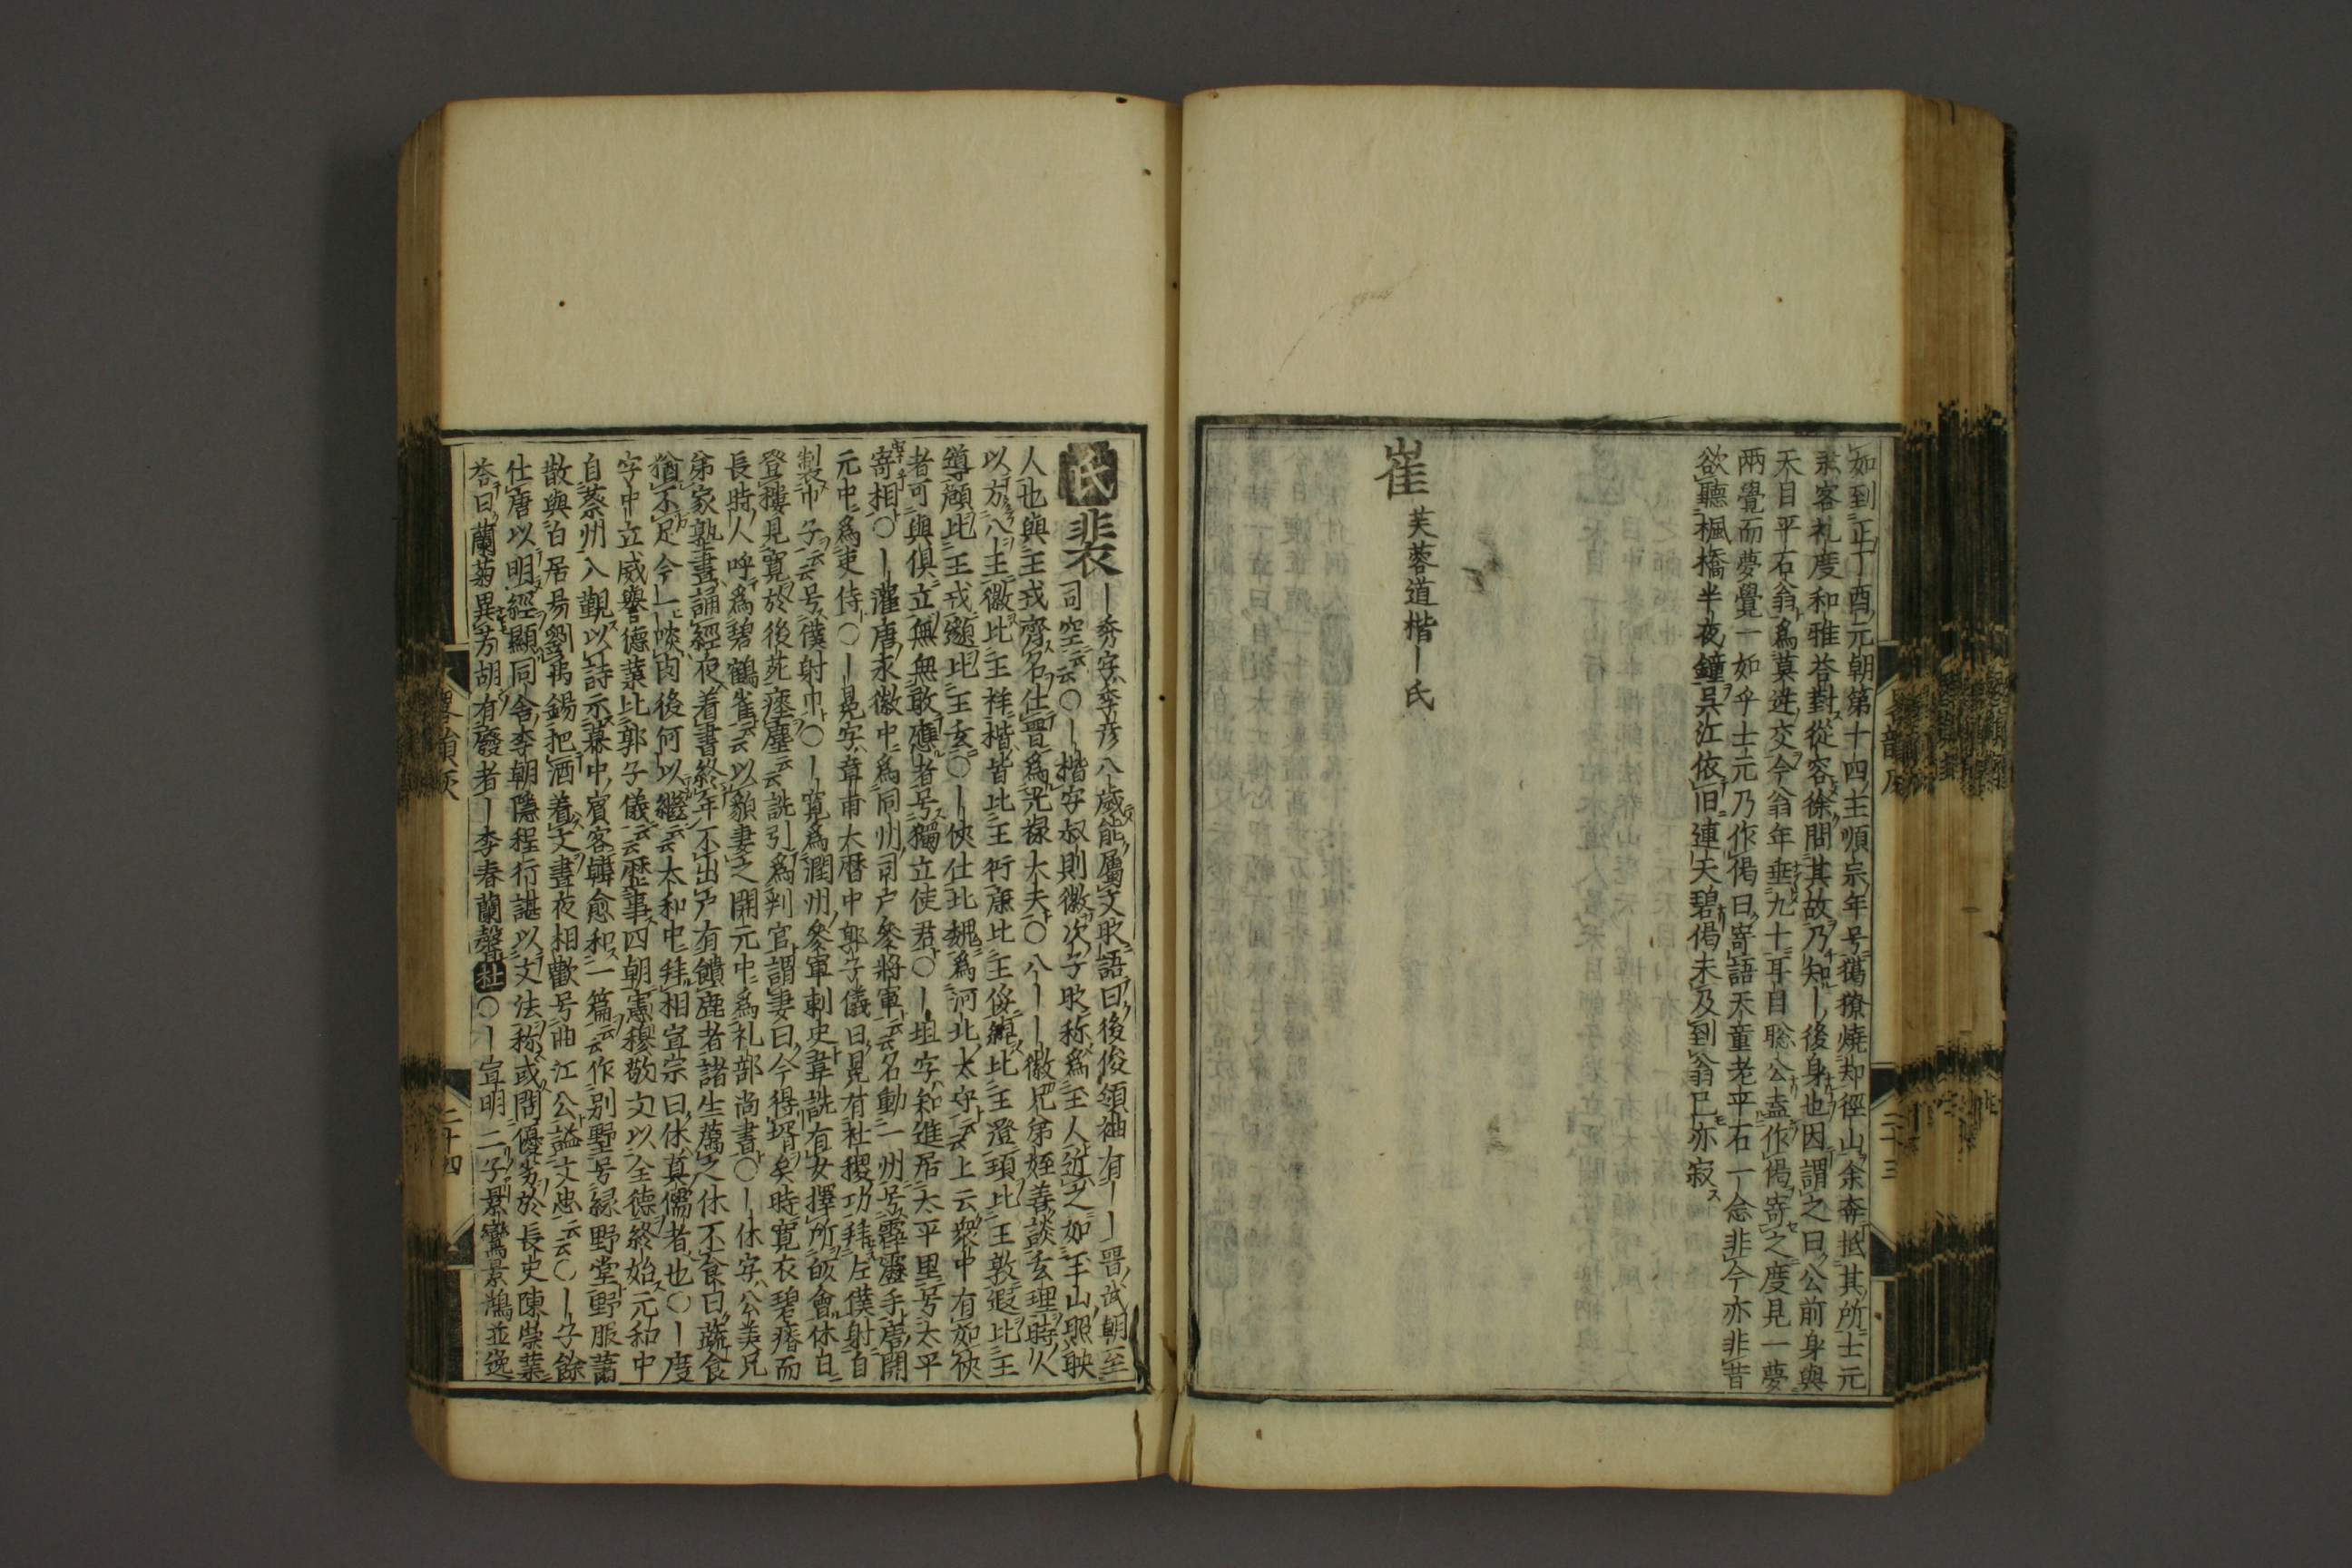 如到正丁酉元朝第十四主順宗年号獦獠燒却徑山余奔抵其所士元
系客礼度和雅荅對從容徐問其故乃知｜後身也因謂之曰公前身與
天目平石翁爲莫逆交今翁年垂九十耳目聡公盍作偈寄之度見一夢
兩覺而夢覺一如乎士元乃作偈曰寄語天童老平石一念非今亦非昔
欲聽楓橋半夜鐘吳江依旧連天碧偈未及到翁已亦寂
崔 芙蓉道楷｜氏
氏 裴 ｜秀字季彦八歲能屬文時語曰後俊領袖有｜｜晋武朝至
司空云云○｜楷字叔則徽次子時称爲玉人近之如玉山照映
人也與王戎齊名仕晋爲光禄大夫○八｜｜徽兄弟姪善談玄理時人
以方八王徽比王祥楷皆比王衍康比王綏綽比王澄頠比王敦遐比王
導顧比王戎邈比王玄○｜俠仕北魏爲河北太守云云上云衆中有如俠
者可與俱立無無敢應者号獨立使君○｜坦字知進居太平里号太平
寄相○｜漼唐永徽中爲同州司戸參將軍云云名動一州号霹靂手唐開
元中爲吏侍○｜晃字章甫大暦中郭子儀曰晃有社稷功拜左僕射自
製巾子云云号僕射巾○｜寬爲潤州參軍刺史韋詵有女擇所敀會休日
登樓見寬於後苑瘞塵云云詵引爲判官謂妻曰今得壻矣時寬衣碧瘠而
長時人呼爲碧鸛雀云云以貌妻之開元中爲礼部尚書○｜休字公美兄
弟家塾晝誦經夜着書終年不出戸有饋鹿者諸生薦之休不食曰蔬食
猶不足今一啖肉後何以繼云云太和中拜相宣宗曰休真儒者也○｜度
字中立威譽德業比郭子儀云云歷事四朝憲穆敬文以全德終始元和中
自蔡州入覲以詩示幕中賓客韓愈和一篇云云作别墅号緑野堂野服蕭
散與白居易劉禹錫把酒着文晝夜相歡号曲江公謚文忠云云○｜子餘
仕唐以明經顯同舍李朝隱程行諶以文法称或問優劣於長史陳崇葉
荅曰蘭菊異芳胡有廢者｜李春蘭馨杜○｜宣明二子景鸞景鴻並逸
畧韻灰
二十四
二十三